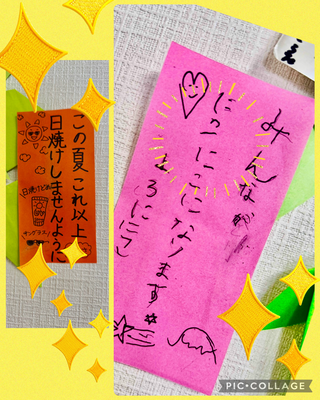 この夏、これ以上
日焼けしませんように
日焼けどめ
サングラス
みんなが
になります
PIC•COLLAGE